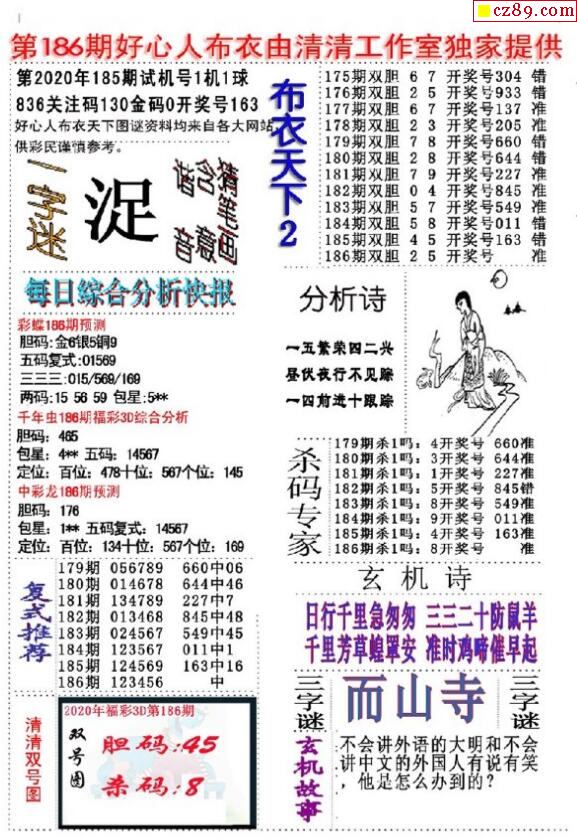 cz89.com
第186期好心人布衣由清清工作室独家提供
第2020年185期试机号1机1球
836关注码130金码0开奖号163
好心人布衣天下图谜资料均来自各大网站,
供彩民谨慎参考。
一字迷
浞
猪笔画
含意
谐音
每日综合分析快报
彩蝶186期预测
胆码:金6银5铜9
五码复式:01569
三三三:015/569/169
两码:15 56 59 包星:5**
千年虫186期福彩3D综合分析
胆码: 465
包星: 4** 五码: 14567
定位: 百位: 478十位:567个位: 145
中彩龙186期预测
胆码: 176
包星: 1** 五码复式: 14567
定位: 百位: 134十位:567个位: 169
复式推荐
179期 056789 660中06
180期 014678 644中46
181期 134789 227中7
182期 013468 845中48
183期 024567 549中45
184期 123567 011中1
185期 124569 163中16
186期 123456 中
清清双号图
2020年福彩3D第186期
双号图
胆码:45
杀码:8
布衣天下2
175期双胆 6 7 开奖号304 错
176期双胆 2 5 开奖号933 错
177期双胆 6 7 开奖号137 准
178期双胆 2 3 开奖号205 准
179期双胆 7 8 开奖号660 错
180期双胆 2 8 开奖号644 错
181期双胆 7 9 开奖号227 准
182期双胆 0 4 开奖号845 准
183期双胆 5 7 开奖号549 准
184期双胆 5 8 开奖号011 错
185期双胆 4 5 开奖号163 错
186期双胆 2 5 开奖号 准
分析诗
一五繁荣四二兴
昼伏夜行不见踪
一四前进十跟踪
杀码专家
179期杀1吗: 4开奖号 660准
180期杀1吗: 3开奖号 644准
181期杀1吗: 1开奖号 227准
182期杀1吗: 5开奖号 845错
183期杀1吗: 8开奖号 549准
184期杀1吗: 9开奖号 011准
185期杀1吗: 4开奖号 163准
186期杀1吗: 8开奖号 准
玄机诗
日行千里急匆匆 三三二十防鼠羊
千里芳草蝗罩安 准时鸡啼催早起
三字谜
而山寺
三字谜
玄机故事
不会讲外语的大明和不会
讲中文的外国人有说有笑
，他是怎么办到的?